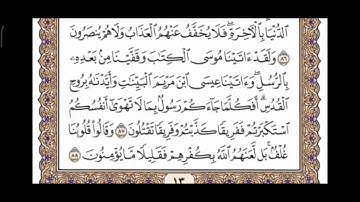 الدُّنْيَا بِالْآخِرَةِ ۖ فَلَا يُخَفَّفُ عَنْهُمُ الْعَذَابُ وَلَا هُمْ يُنْصَرُونَ
٨٦ وَلَقَدْ آتَيْنَا مُوسَى الْكِتَابَ وَقَفَّيْنَا مِنْ بَعْدِهِ
بِالرُّسُلِ ۖ وَآتَيْنَا عِيسَى ابْنَ مَرْيَمَ الْبَيِّنَاتِ وَأَيَّدْنَاهُ بِرُوحِ
الْقُدُسِ ۗ أَفَكُلَّمَا جَاءَكُمْ رَسُولٌ بِمَا لَا تَهْوَىٰ أَنْفُسُكُمُ
اسْتَكْبَرْتُمْ فَفَرِيقًا كَذَّبْتُمْ وَفَرِيقًا تَقْتُلُونَ ٨٧ وَقَالُوا قُلُوبُنَا
غُلْفٌ ۚ بَلْ لَعَنَهُمُ اللَّهُ بِكُفْرِهِمْ فَقَلِيلًا مَا يُؤْمِنُونَ ٨٨
١٣